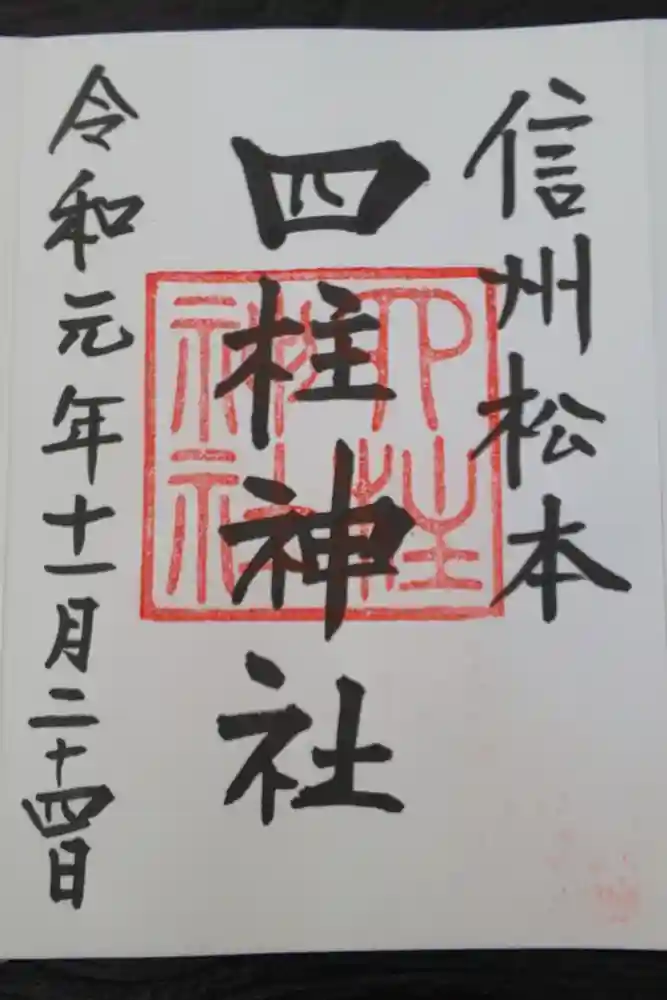 信州松本
四柱神社
四柱神社
令和元年十一月二十四日